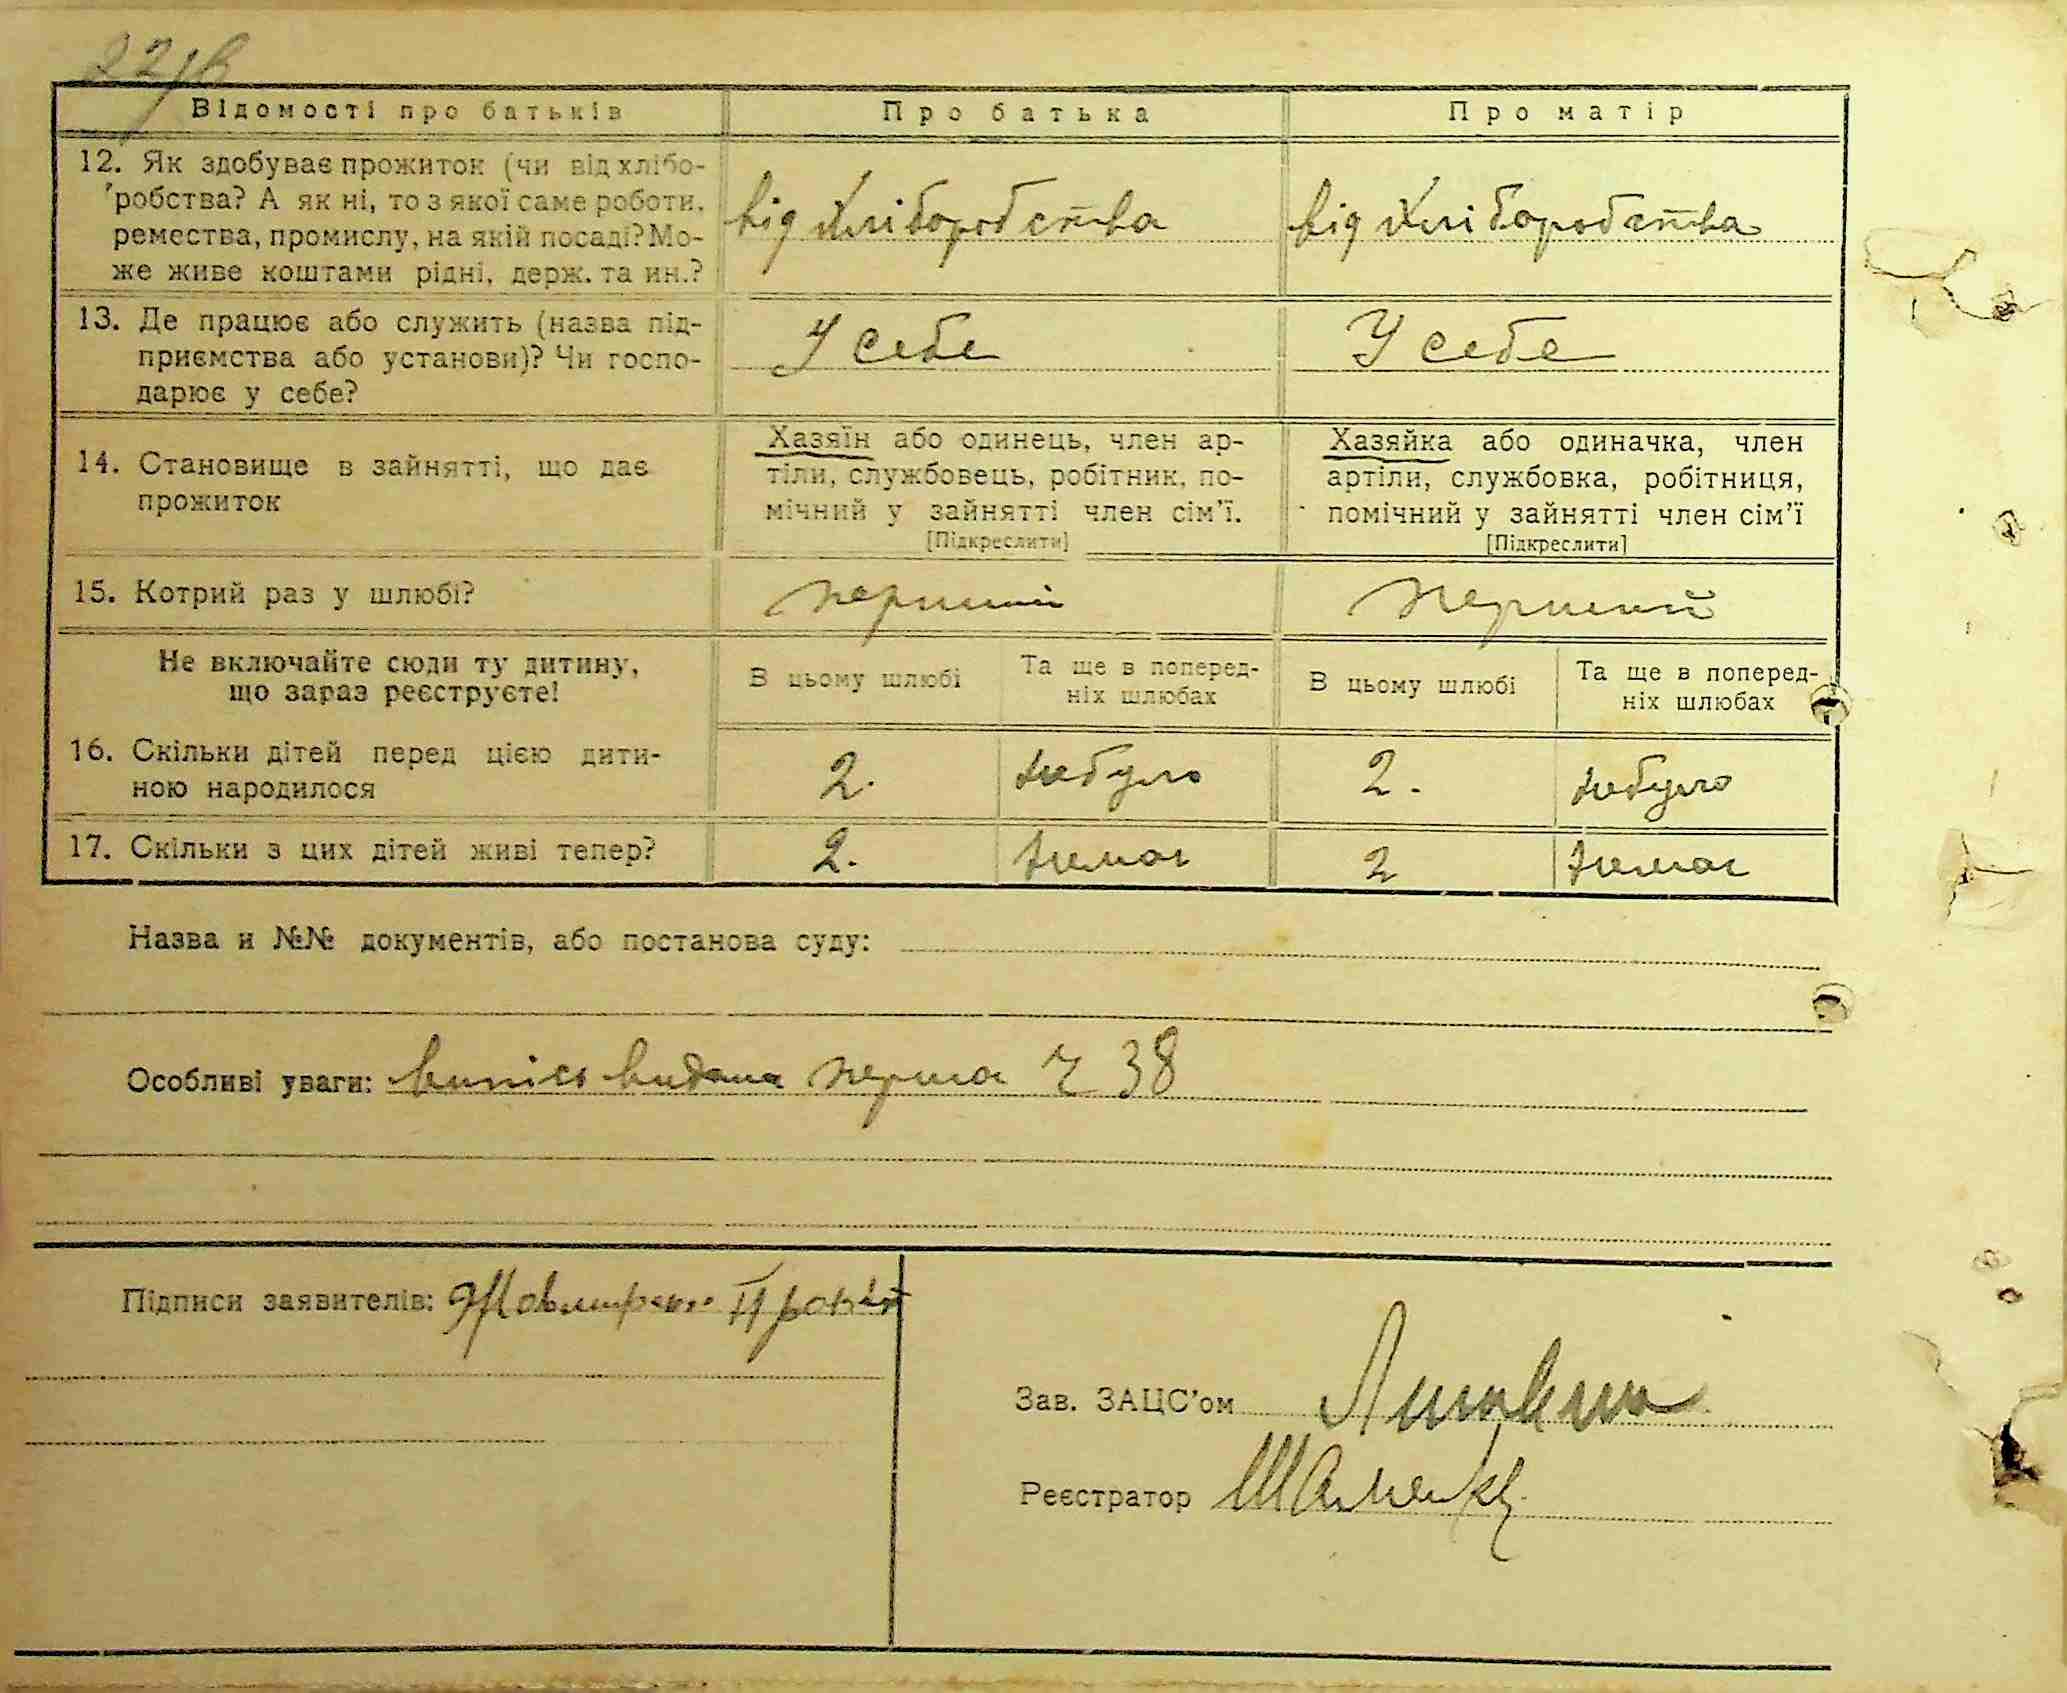 Відомості про батьків Про батька Про матір
12. Як здобуває прожиток (чи від хлібо-
робства? А як ні, то з якої саме роботи,
ремества, промислу, на якій посаді? Мо-
же живе коштами рідні, держ. та ин.?
від хліборобства від хліборобства
13. Де працює або служить (назва під-
приємства або установи)? Чи госпо-
дарює у себе?
У себе У себе
14. Становище в зайнятті, що дає
прожиток
Хазяїн або одинець, член ар-
тіли, службовець, робітник, по-
мічний у зайнятті член сім'ї.
[Підкреслити]
Хазяйка або одиначка, член
артіли, службовка, робітниця,
помічний у зайнятті член сім'ї
[Підкреслити]
15. Котрий раз у шлюбі? перший перший
Не включайте сюди ту дитину,
що зараз реєструєте!
В цьому шлюбі
Та ще в поперед-
ніх шлюбах
В цьому шлюбі
Та ще в поперед-
ніх шлюбах
16. Скільки дітей перед цією дити-
ною народилося
2. небуло 2. небуло
17. Скільки з цих дітей живі тепер? 2. нема 2 нема
Назва и №№ документів, або постанова суду:
Особливі уваги: випись видана перша Ч 38
Підписи заявителів:
Зав. ЗАЦС'ом
Реєстратор